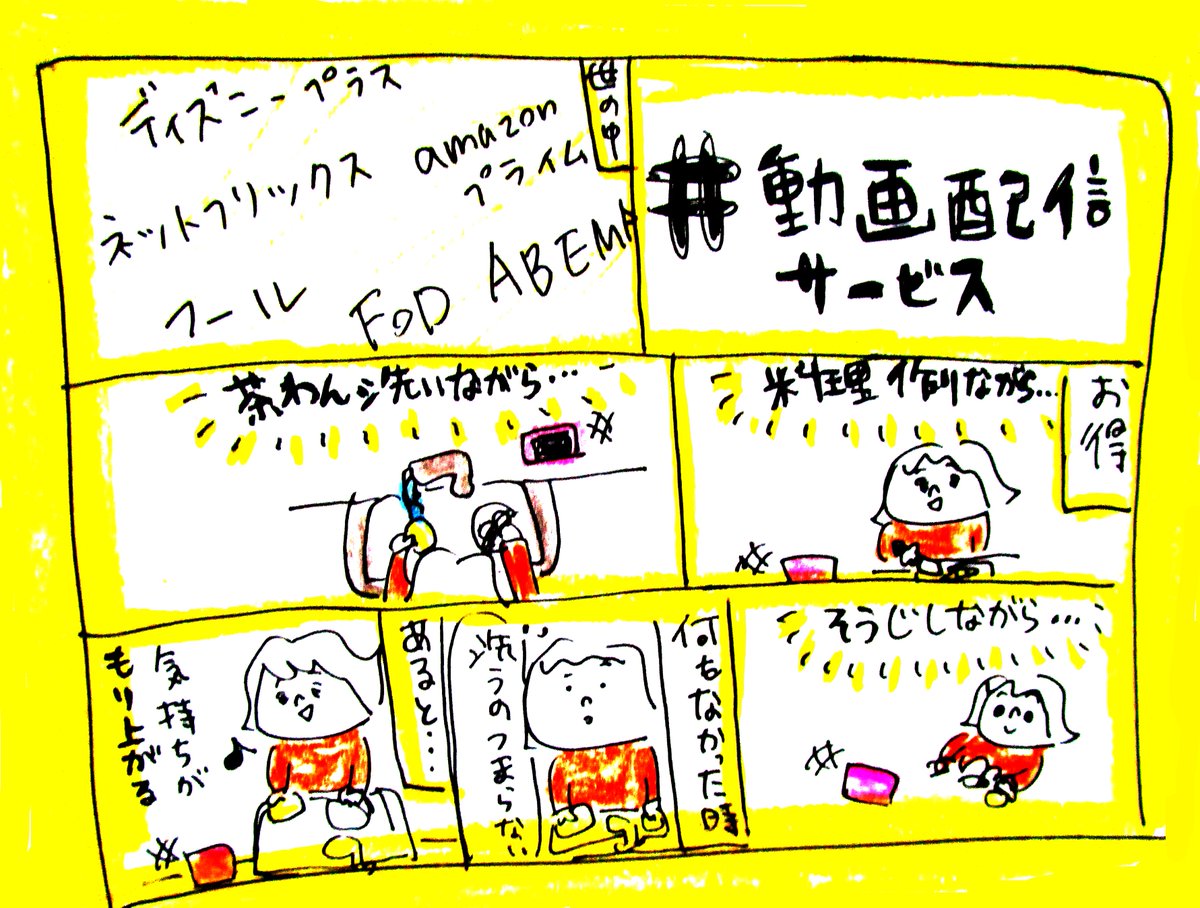 #動画配信
サービス
世の中
ディズニープラス
amazon
プライム
ネットフリックス
フールル
FOD
ABEMA
お得
料理作りながら…
茶わん洗いながら…
そうじしながら…
何もなかった時
洗うのつまらない
あると…
気持ちが
もり上がる